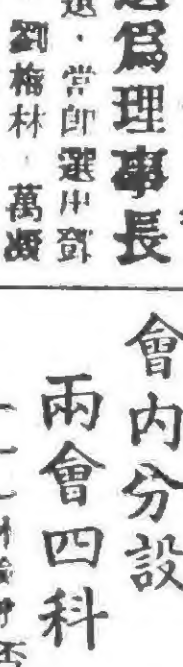 爲理事長
選·當即選出鄧
劉梅林·萬
會內分設
兩會四科